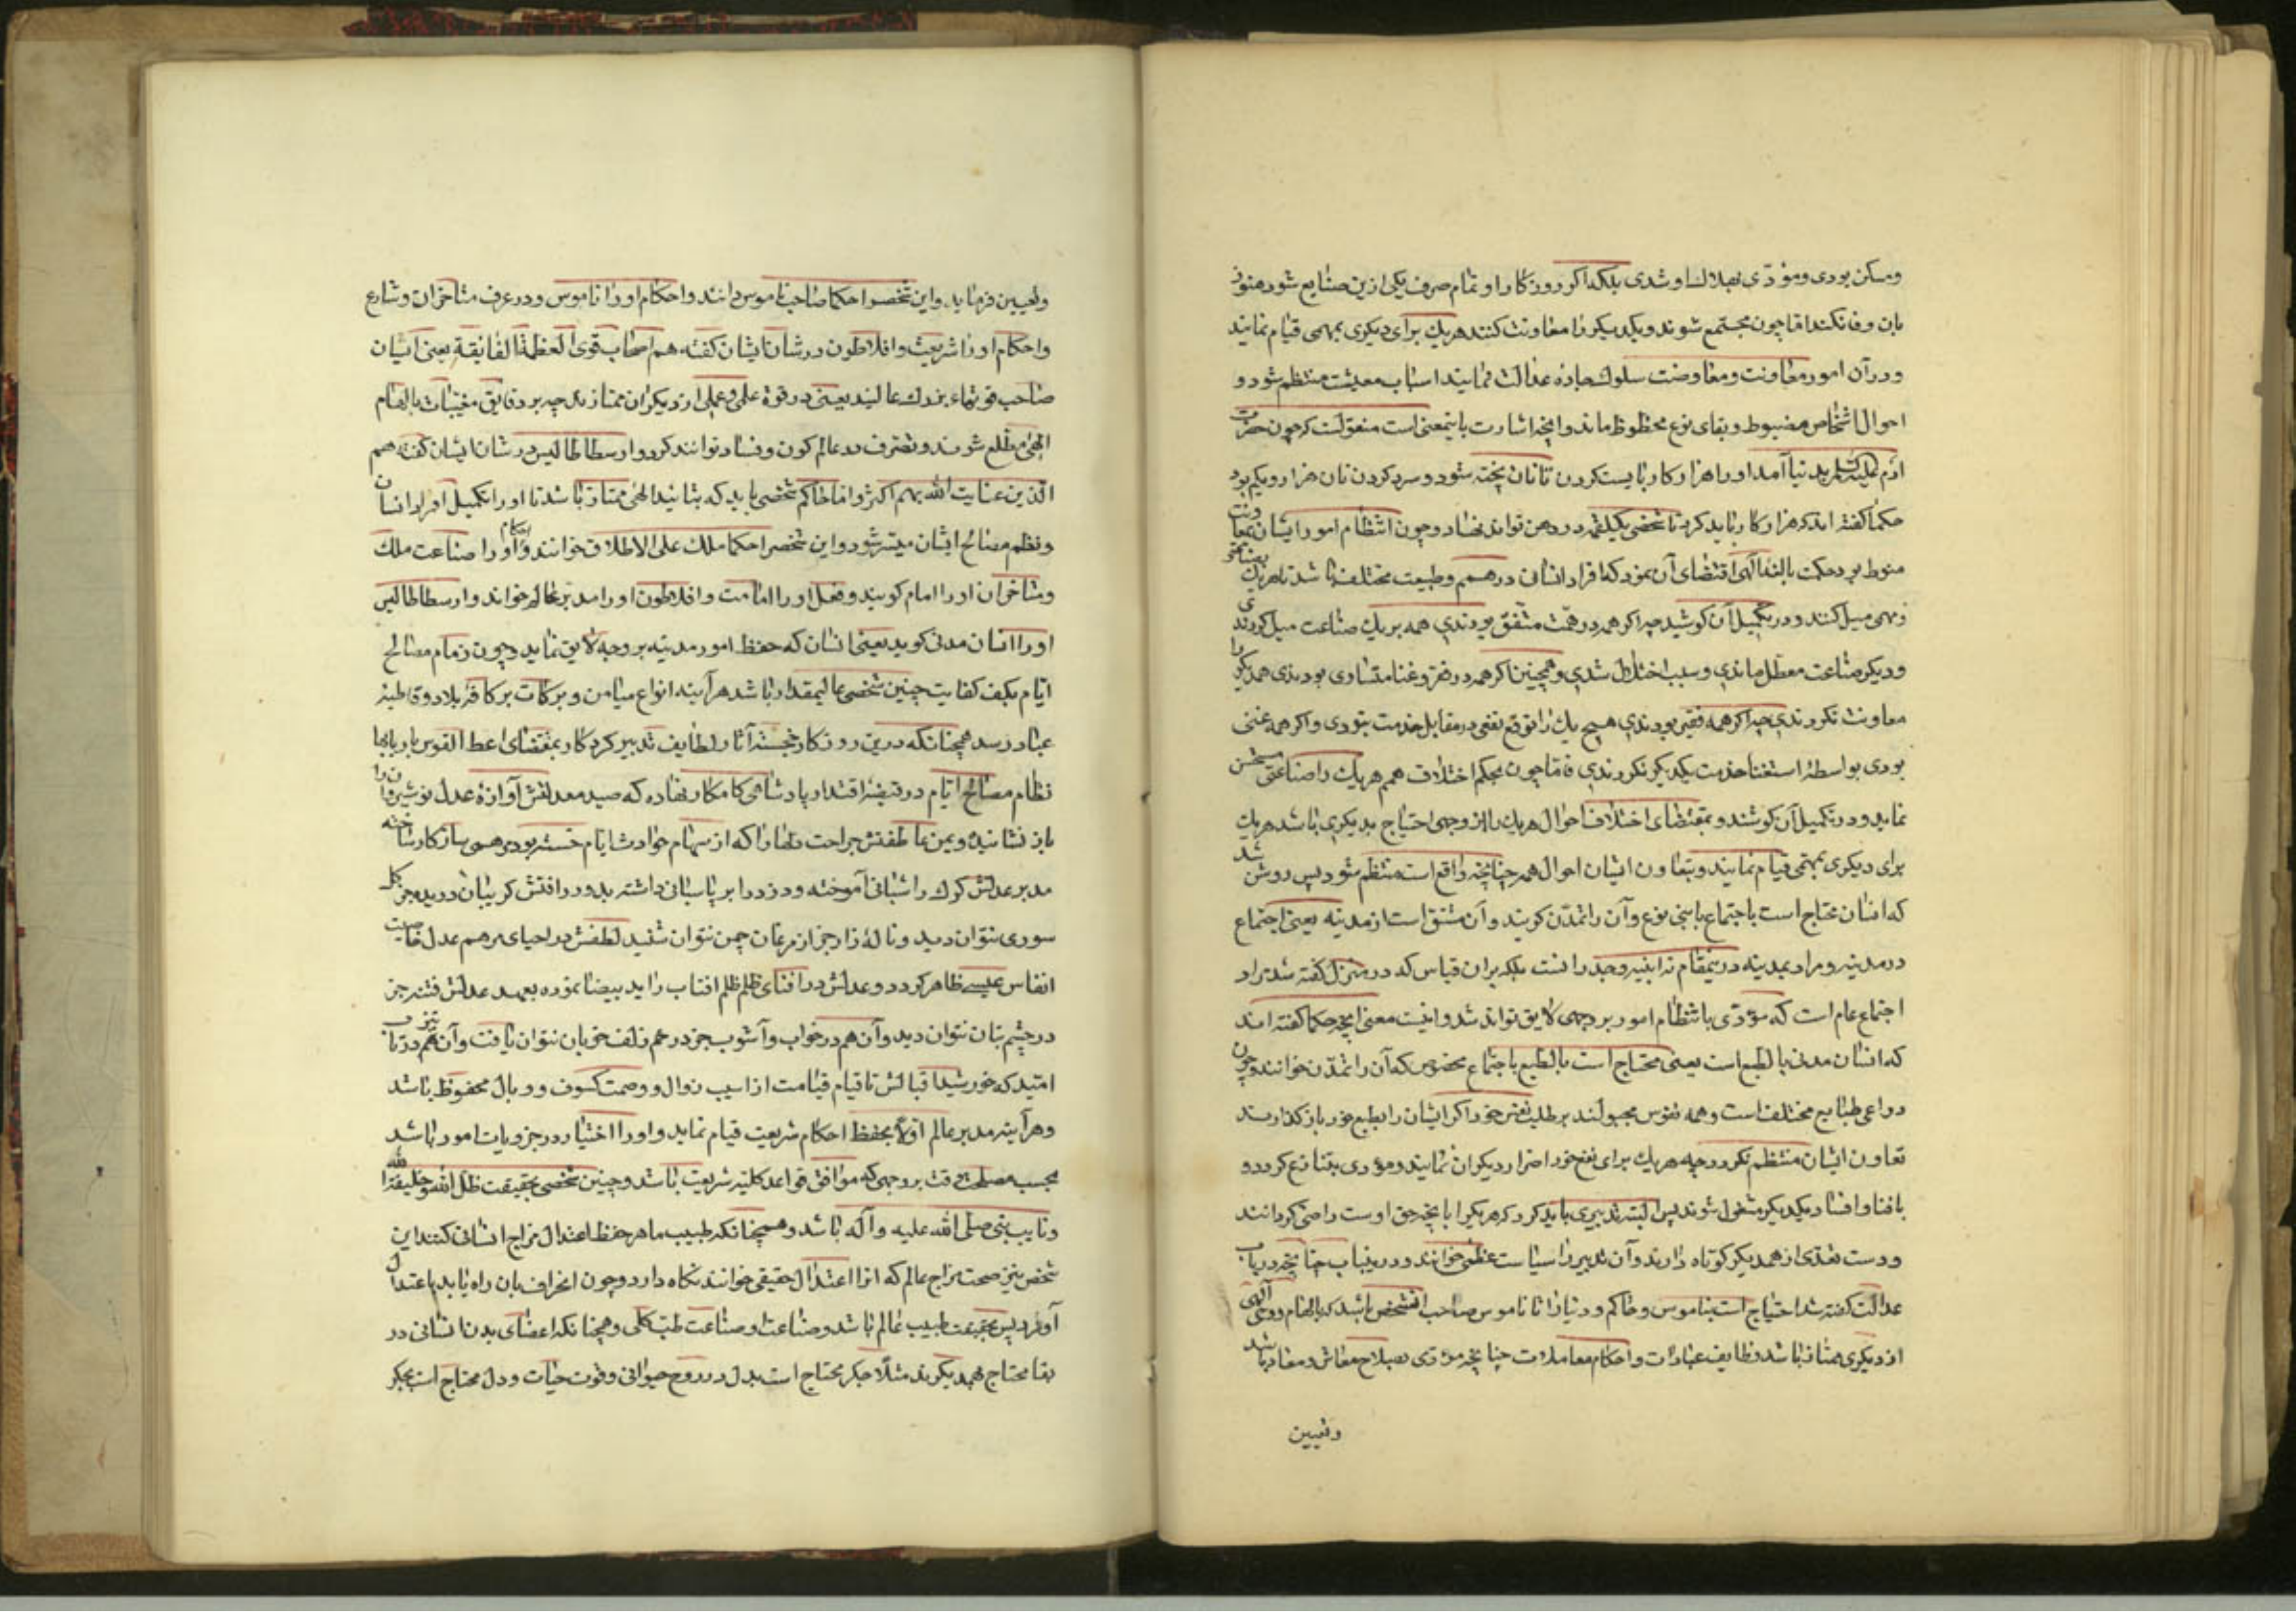 ومسکن بودی ومؤدّی بهلاک او شدی بلکه اکر روزکار او تمام صرف یکی ازین صنایع شود هنوز
بان وفا نکند اما چون مجتمع شوند ویکدیکر را معاونت کنند هریك برای دیکری بمهمی قیام نمایند
ودر آن امور معاونت ومعاوضت سلوك جاده عدالت نمایند اسباب معیشت منتظم شود و
احوال اشخاص مضبوط وبقای نوع محظوظ ماند وانچه اشارت باینمعنی است منقولست که چون حضرت
ادم علیه السلام بدنیا آمد او را هزار کار بایست کردن تا نان پخته شود وسرد کردن نان هزار ویکم بود
حکما کفته اند که هزار کار باید کرد تا شخصی یکلقمه در دهن تواند نهاد وچون انتظام امور ایشان بمعاونت
منوط بود حکمت بالغه الهی اقتضای آن نمود که افراد انسانی در همم وطبیعت مختلف باشد تا هریك بصناعتی
ومهمی میل کنند ودر تکمیل آن کوشند چه اکر همه در همّت متّفق بودندی همه بر یك صناعت میل کردندی
ودیکر صناعت معطّل ماندی وسبب اختلال شدی وهمچنین اکر همه در فقر وغنا متساوی بودندی همدیکر را
معاونت نکردندی چه اکر همه فقیر بودندی هیچ یك را توقع نفعی در مقابل خدمت نبودی واکر همه غنی
بودی بواسطه استغنا خدمت یکدیکر نکردندی فاما چون بحکم اختلاف همم هریك را صناعتی مستحسن
نماید ودر تکمیل آن کوشند وبمقتضای اختلاف احوال هریك را از وجهی احتیاج بدیکری باشد هریك
برای دیکری بمهمی قیام نمایند وبتعاون ایشان احوال همه چنانچه واقع است منتظم شود پس روشن شد
که انسان محتاج است باجتماع با بنی نوع وآن را تمدّن کویند وآن مشتق است از مدینه یعنی اجتماع
در مدینه ومراد بمدینه درینمقام نه ابنیه وجدرانست بلکه بران قیاس که در منزل کفته شد مراد
اجتماع عام است که مؤدّی بانتظام امور بر وجهی لایق تواند شد واینست معنی انچه حکما کفته اند
که انسان مدنی بالطبع است یعنی محتاج است بالطبع باجتماع مخصوص که آن را تمدّن خوانند وچون
دواعی طبایع مختلف است وهمه نفوس مجبولند بر طلب نفع خود اکر ایشان را بطبع خود بازکذارند
تعاون ایشان منتظم نکردد چه هریك برای نفع خود اضرار دیکران نمایند ومؤدی بتنازع کردد و
بافنا وافساد یکدیکر مشغول شوند پس البته تدبیری باید کرد که هر یکرا بانچه حق اوست راضی کردانند
ودست تعدّی از همدیکر کوتاه دارند وآن تدبیر را سیاست عظمی خوانند ودرینباب چنانچه در باب
عدالت کفته شد احتیاج است بناموس وحاکم ودینار اما ناموس صاحب انشخص باشد که بالهام ووحی الهی
از دیکری ممتاز باشد تا وظایف عبادات واحکام معاملات چنانچه مؤدی بصلاح معاش ومعاد باشد
وتعیین
وتعیین فرماید واین شخص را حکما صاحب ناموس دانند واحکام او را ناموس ودر عرف متاخران وشارع
واحکام او را شریعت وافلاطون در شان ایشان کفته هم اصحاب قوی العظمة الفایقة یعنی ایشان
صاحب قوتهاء بزرك عالیند یعنی در قوة علمی وعملی از دیکران ممتازند چه بر دقایق مغیبات بالهام
الهی مطّلع شوند وتصرف در عالم کون وفساد توانند کرد وارسطاطالیس در شان ایشان کفته هم
الّذین عنایت الله بهم اکثر واما حاکم شخصی باید که بتایید الهی ممتاز باشد تا او را تکمیل افراد انسان
ونظم مصالح ایشان میسّر شود واین شخص را حکما ملك علی الاطلاق خوانند واحکام او را صناعت ملك
ومتاخران او را امام کویند وفعل او را امامت وافلاطون او را مدبر عالم خواند وارسطاطالیس
او را انسان مدنی کوید یعنی انسان که حفظ امور مدنیه بر وجه لایق نماید وچون زمام مصالح
انام بکف کفایت چنین شخصی عالیمقدار باشد هر آینه انواع میامن وبرکات بر کافه بلاد وقاطبه
عباد رسد همچنانکه درین روزکار خجسته آثار لطایف تدبیر کردکار بمقتضای اعط القوس باریها
نظام مصالح انام در قبضه اقتدار پادشاهی کامکار نهاده که صید معدلتش آوازه عدل نوشیروان را
باز نشانیده ویمن عاطفتش جراحت دلها را که از سهام حوادث ایام خسته بود مرهمی سازکار ساخته
مدبر عدلش کرك را شبانی آموخته ودزد را بر پاسبانی داشته بدور رافتش کریبان دریده جز کل
سوری نتوان دید وناله زار جز از مرغان چمن نتوان شنید لطفش در احیای مرهم عدل خاصیت
انفاس عیسی ظاهر کردد وعدلش در افنای ظلم ظلم افتاب را ید بیضا نموده بعهد عدلش فتنه جز
در چشم بتان نتوان دید وآن هم در خواب وآشوب جز در خم زلف خوبان نتوان یافت وآن هم در تاب
امّید که خورشید اقبالش تا قیام قیامت از اسیب زوال ووصمت کسوف ووبال محفوظ باشد
وهر آینه مدبر عالم اوّلا بحفظ احکام شریعت قیام نماید واو را اختیار در جزویات امور باشد
بحسب مصلحت وقت بر وجهی که موافق قواعد کلیّه شریعت باشد وچنین شخصی بحقیقت ظلّ الله وخلیفة الله
ونایب نبی صلی الله علیه وآله باشد وهمچنانکه طبیب ماهر حفظ اعتدال مزاج انسانی کند این
شخص نیز صحت مزاج عالم که انرا اعتدال حقیقی خوانند نکاه دارد وچون انحراف بان راه یابد باعتدال
آورد پس بحقیقت طبیب عالم باشد وصناعت او صناعت طب کلّی وهمچنانکه اعضای بدن انسانی در
بقا محتاج بهمدیکرند مثلا جکر محتاج است بدل در روح حیوانی وقوت حیات ودل محتاج است بجکر